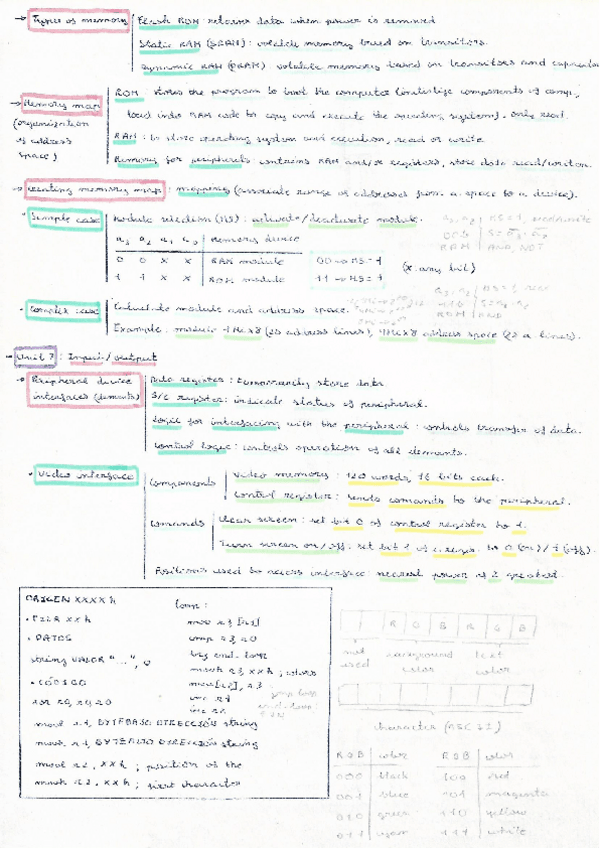 Types of memory
Flash ROM: retains data when power is removed
Static RAM (SRAM): volatile memory based on transistors.
Dynamic RAM (DRAM): volatile memory based on transistors and
Memory map (organization of address space)
ROM: stores the program to boot the computer (initialize components of
load into RAM code to copy and execute the operating system). Only read.
RAM: to store operating system and execution, read or write.
Memory for peripherals: contains RAM and/or registers, store data read/written.
Creating memory map: mapping (associate range of addresses from a space to a device).
Simple case
Module selection (MS): activate/deactivate module.
Memory device
0 0 x x RAM module 00 → MS=1
1 1 x x ROM module 11 → MS=1 (x: any bit)
RAM AND, NOT
Complex case
module and address space.
Example: module (20 address lines), address space (22 a. lines).
ROM AND
Unit 7: Input/output
Peripheral device interfaces (elements)
Data register: temporarily store data.
S/C register: indicate status of peripheral.
Logic for interfacing with the peripheral: controls transfer of data.
Control logic: controls operation of all elements.
Video interface
Components
Video memory: 120 words, 16 bits each.
Control register: sends comands to the peripheral.
Comands
Clear screen: set bit 0 of control register to 1.
Turn screen on/off: set bit 1 of c. regis. to 0 (on)/1 (off).
Positions used to access interface: nearest power of 2 greatest.
ORIGEN XXXXh
.PILA XXh
.DATOS
string VALOR "...", 0
.CODIGO
xor r0, r0, r0
movl r1, BYTEBAJO DIRECCIÓN string
movh r1, BYTEALTO DIRECCIÓN string
movl r2, XXh ; position of the
movh r2, XXh ; first character
loop:
mov r3, [r1]
comp r3, r0
brz end-loop
movh r3, XXh ; colors
mov [r2], r3
inc r1
inc r2
jmp loop
end-loop:
R G B R G B
not used
background color
text color
character (ASCII)
R G B color R G B color
000 black 100 red
001 blue 101 magenta
010 green 110 yellow
011 cyan 111 white